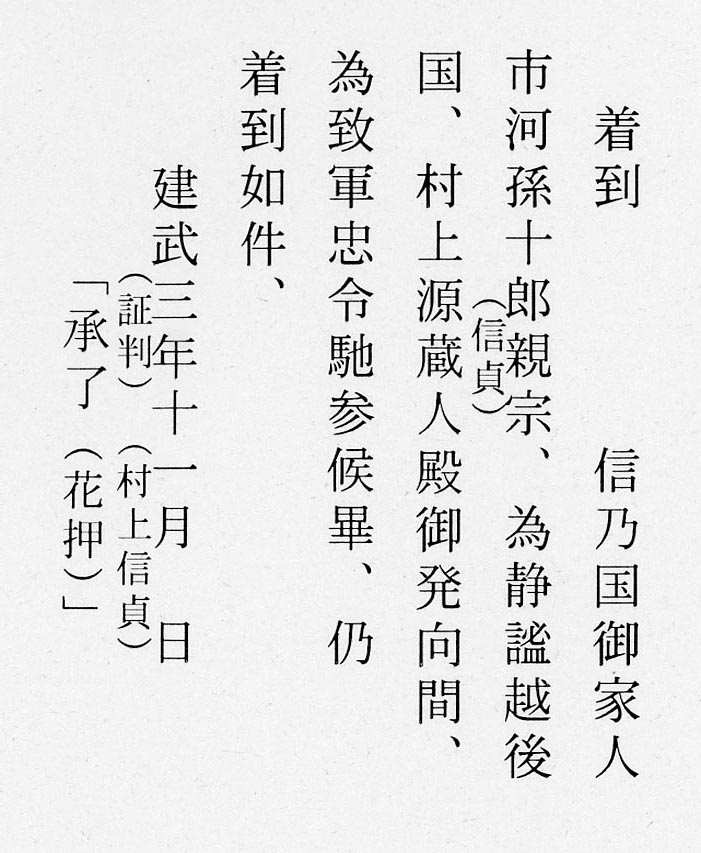 着到　　　　信乃国御家人
市河孫十郎親宗、為静謐越後
（信貞）
国、村上源蔵人殿御発向間、
為致軍忠令馳参候畢、仍
着到如件、
建武三年十一月　日
（証判）（村上信貞）
「承了（花押）」